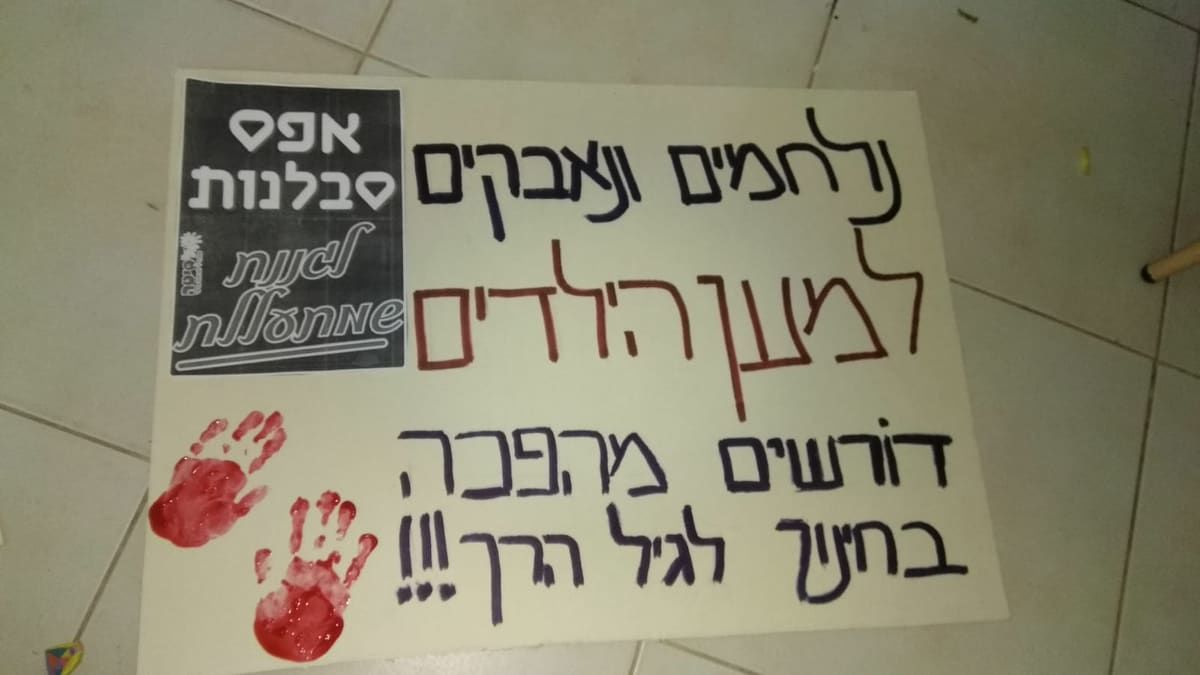 נלחמים ונאבקים
למען הילדים
דורשים מהפכה
בחינוך לגיל הרך!!!
אפס
סבלנות
לגננת
שמתעללת